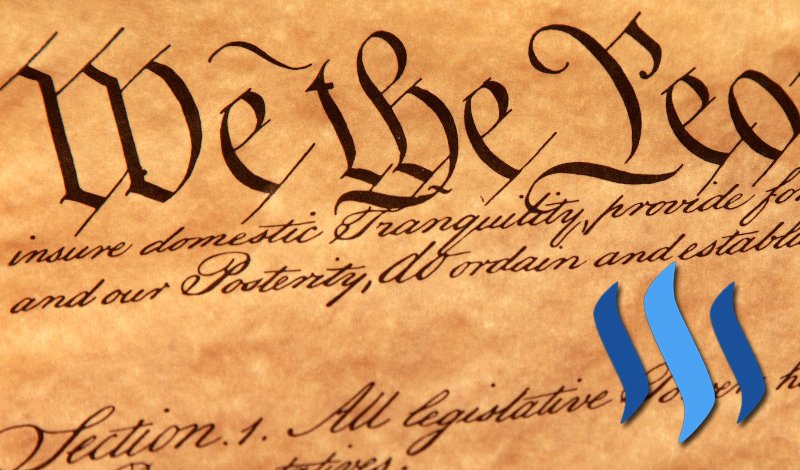 We the Peo
insure domestic Tranquility, provide for
and our Posterity, do ordain and establi
Section. 1. All legislative Power h
tatives.